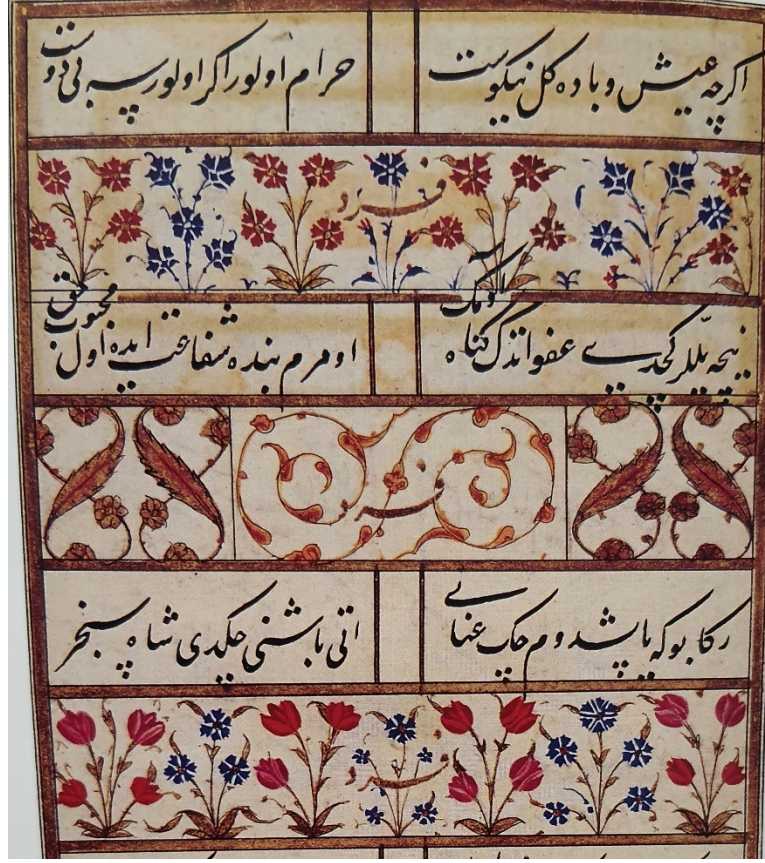 اكرچه عیش و باده كل نیكوست
حرام اولور اكر اولورسه بی دوست
فرد
نیچه ییللر عفو اتدك كناه
اومرم بنده شفاعت ایده اول محبوب حق
فرد
ركابوكه پاشدوم چك عنانی
اتی باشنی چكدی شاه سنجر
فرد